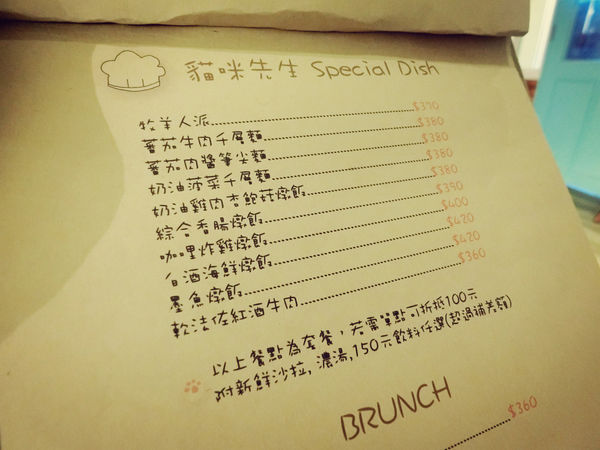 貓咪先生 Special Dish
牧羊人派 $370
蕃茄牛肉千層麵 $380
蕃茄肉醬筆尖麵 $380
奶油菠菜千層麵 $380
奶油雞肉杏鮑菇燉飯 $380
綜合香腸燉飯 $390
咖哩炸雞燉飯 $400
白酒海鮮燉飯 $420
墨魚燉飯 $420
軟法佐紅酒牛肉 $360
以上餐點為套餐，若需單點可折抵100元
附新鮮沙拉, 濃湯,150元飲料任選(超過補差額)
BRUNCH
$360